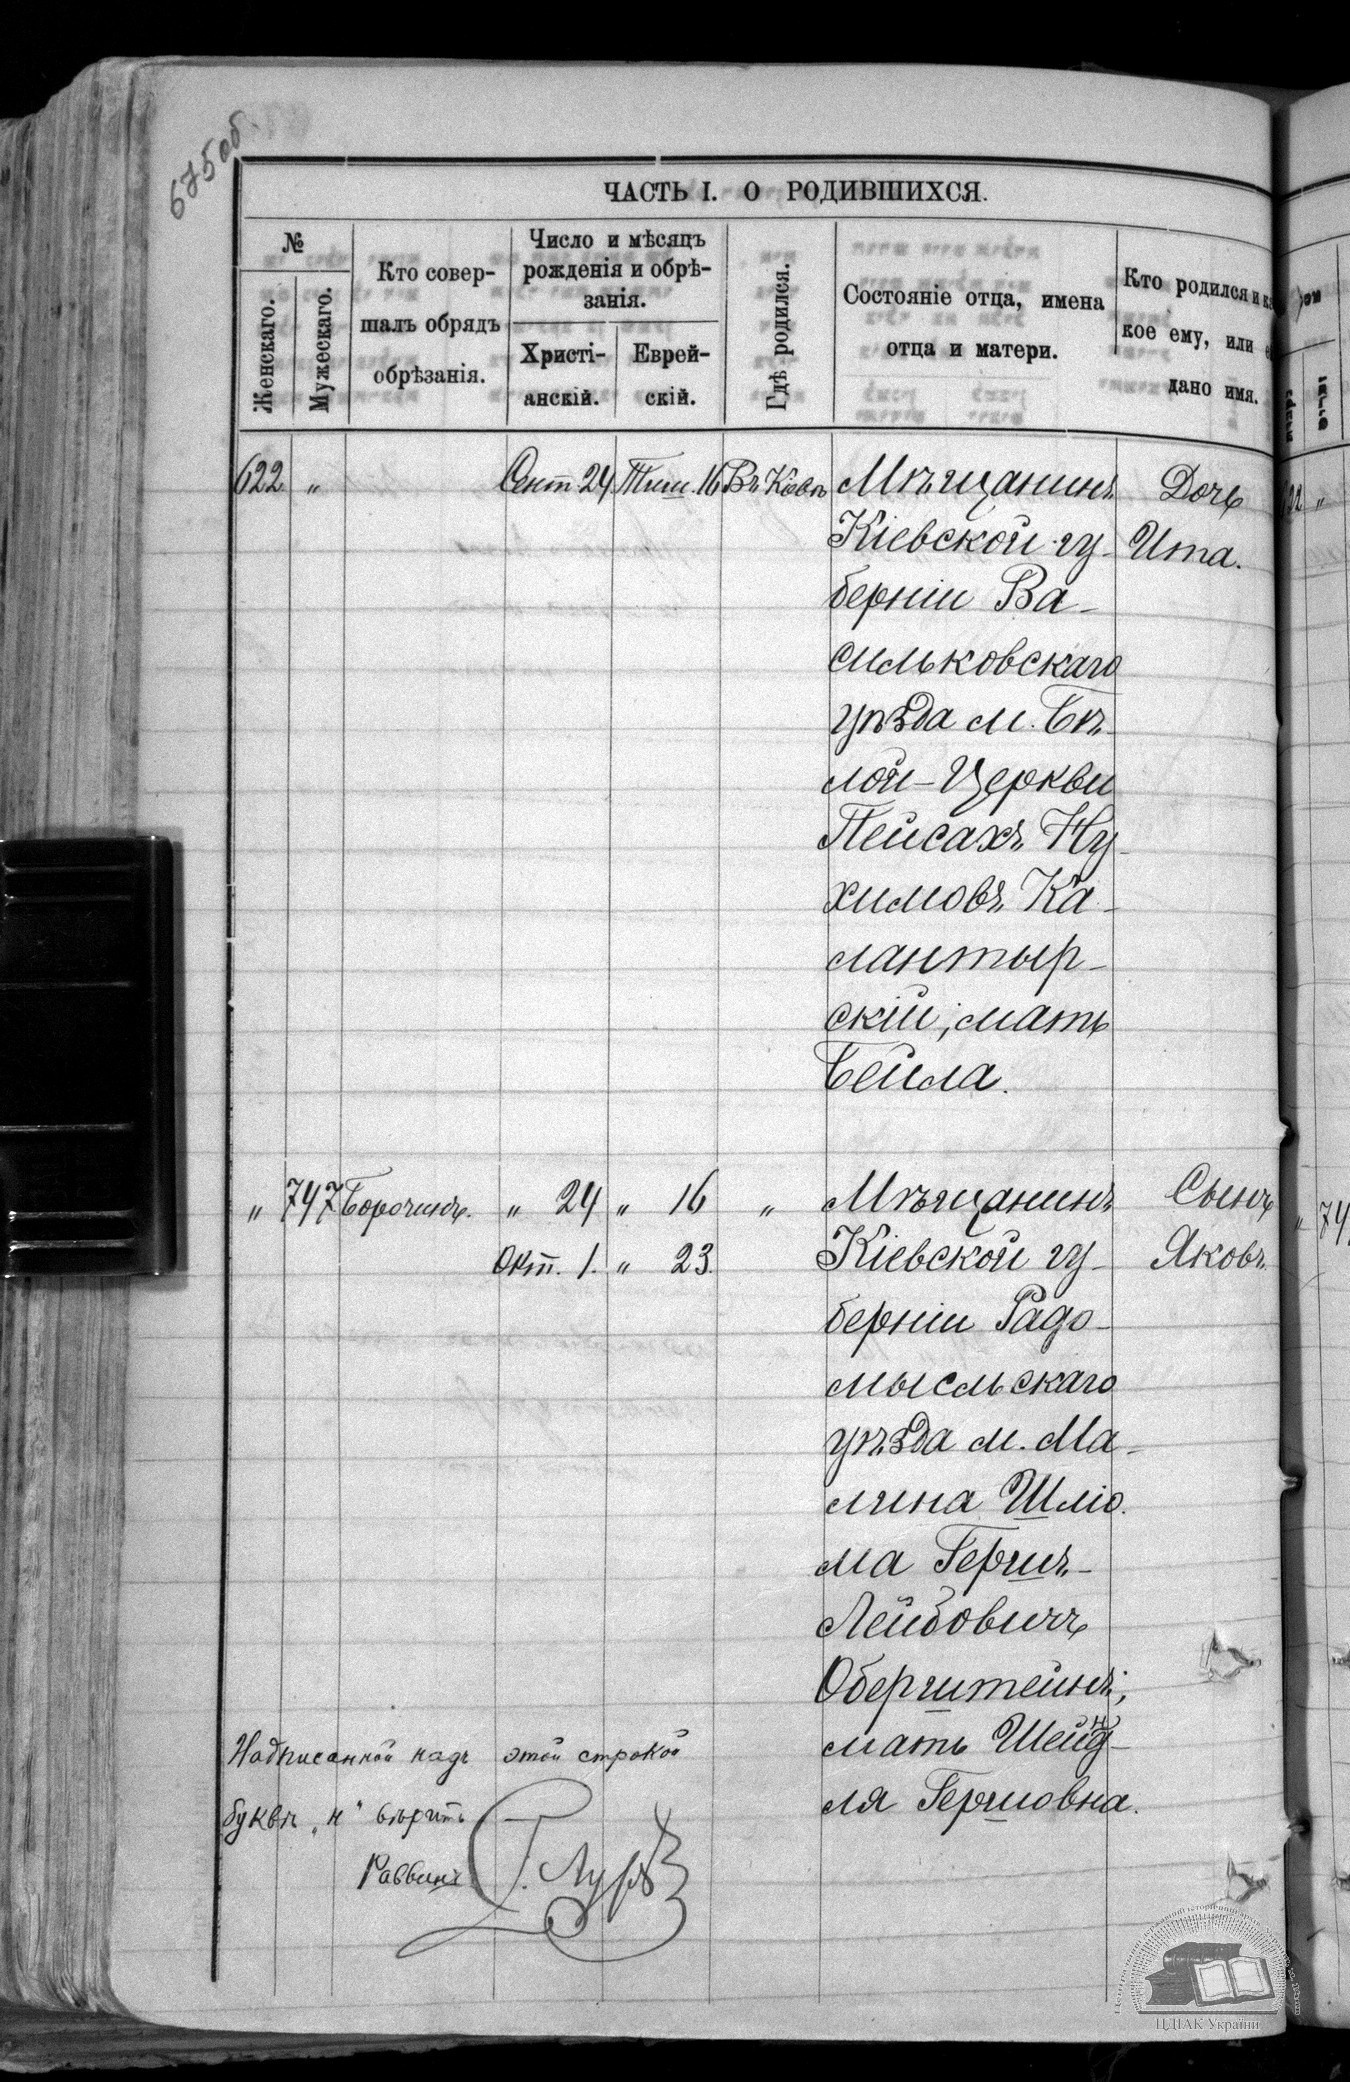 675об.
ЧАСТЬ I. О РОДИВШИХСЯ.
№
Женскаго.
Мужескаго.
Кто совер-
шалъ обрядъ
обрѣзанія.
Число и мѣсяцъ
рожденія и обрѣ-
занія.
Христі-
анскій.
Еврей-
скій.
Гдѣ родился.
Состояніе отца, имена
отца и матери.
Кто родился и ка
кое ему, или е
дано имя.
622 " Сент 24 Тиш. 16 Въ Кіевѣ Мѣщанинъ Дочь
Кіевской гу- Ита.
берніи Ва-
сильковскаго
уѣзда м. Бѣ
лой-Церкви
Пейсахъ Ну-
химовъ Ка-
лантыр-
скій, мать
Бейла.
" 747 Борочинъ. " 24 " 16 " Мѣщанинъ Сынъ
Окт. 1. " 23. Кіевской гу- Яковъ.
берніи Радо-
мысльскаго
уѣзда м. Ма-
лина Шліо-
ма Гершъ-
Лейбовичъ
Оберштейнъ;
мать Шейнд-
ля Гершовна.
Надписанной надъ этой строкой
буквѣ „н" вѣрить
Раввинъ
" 74
ЦДІАК України